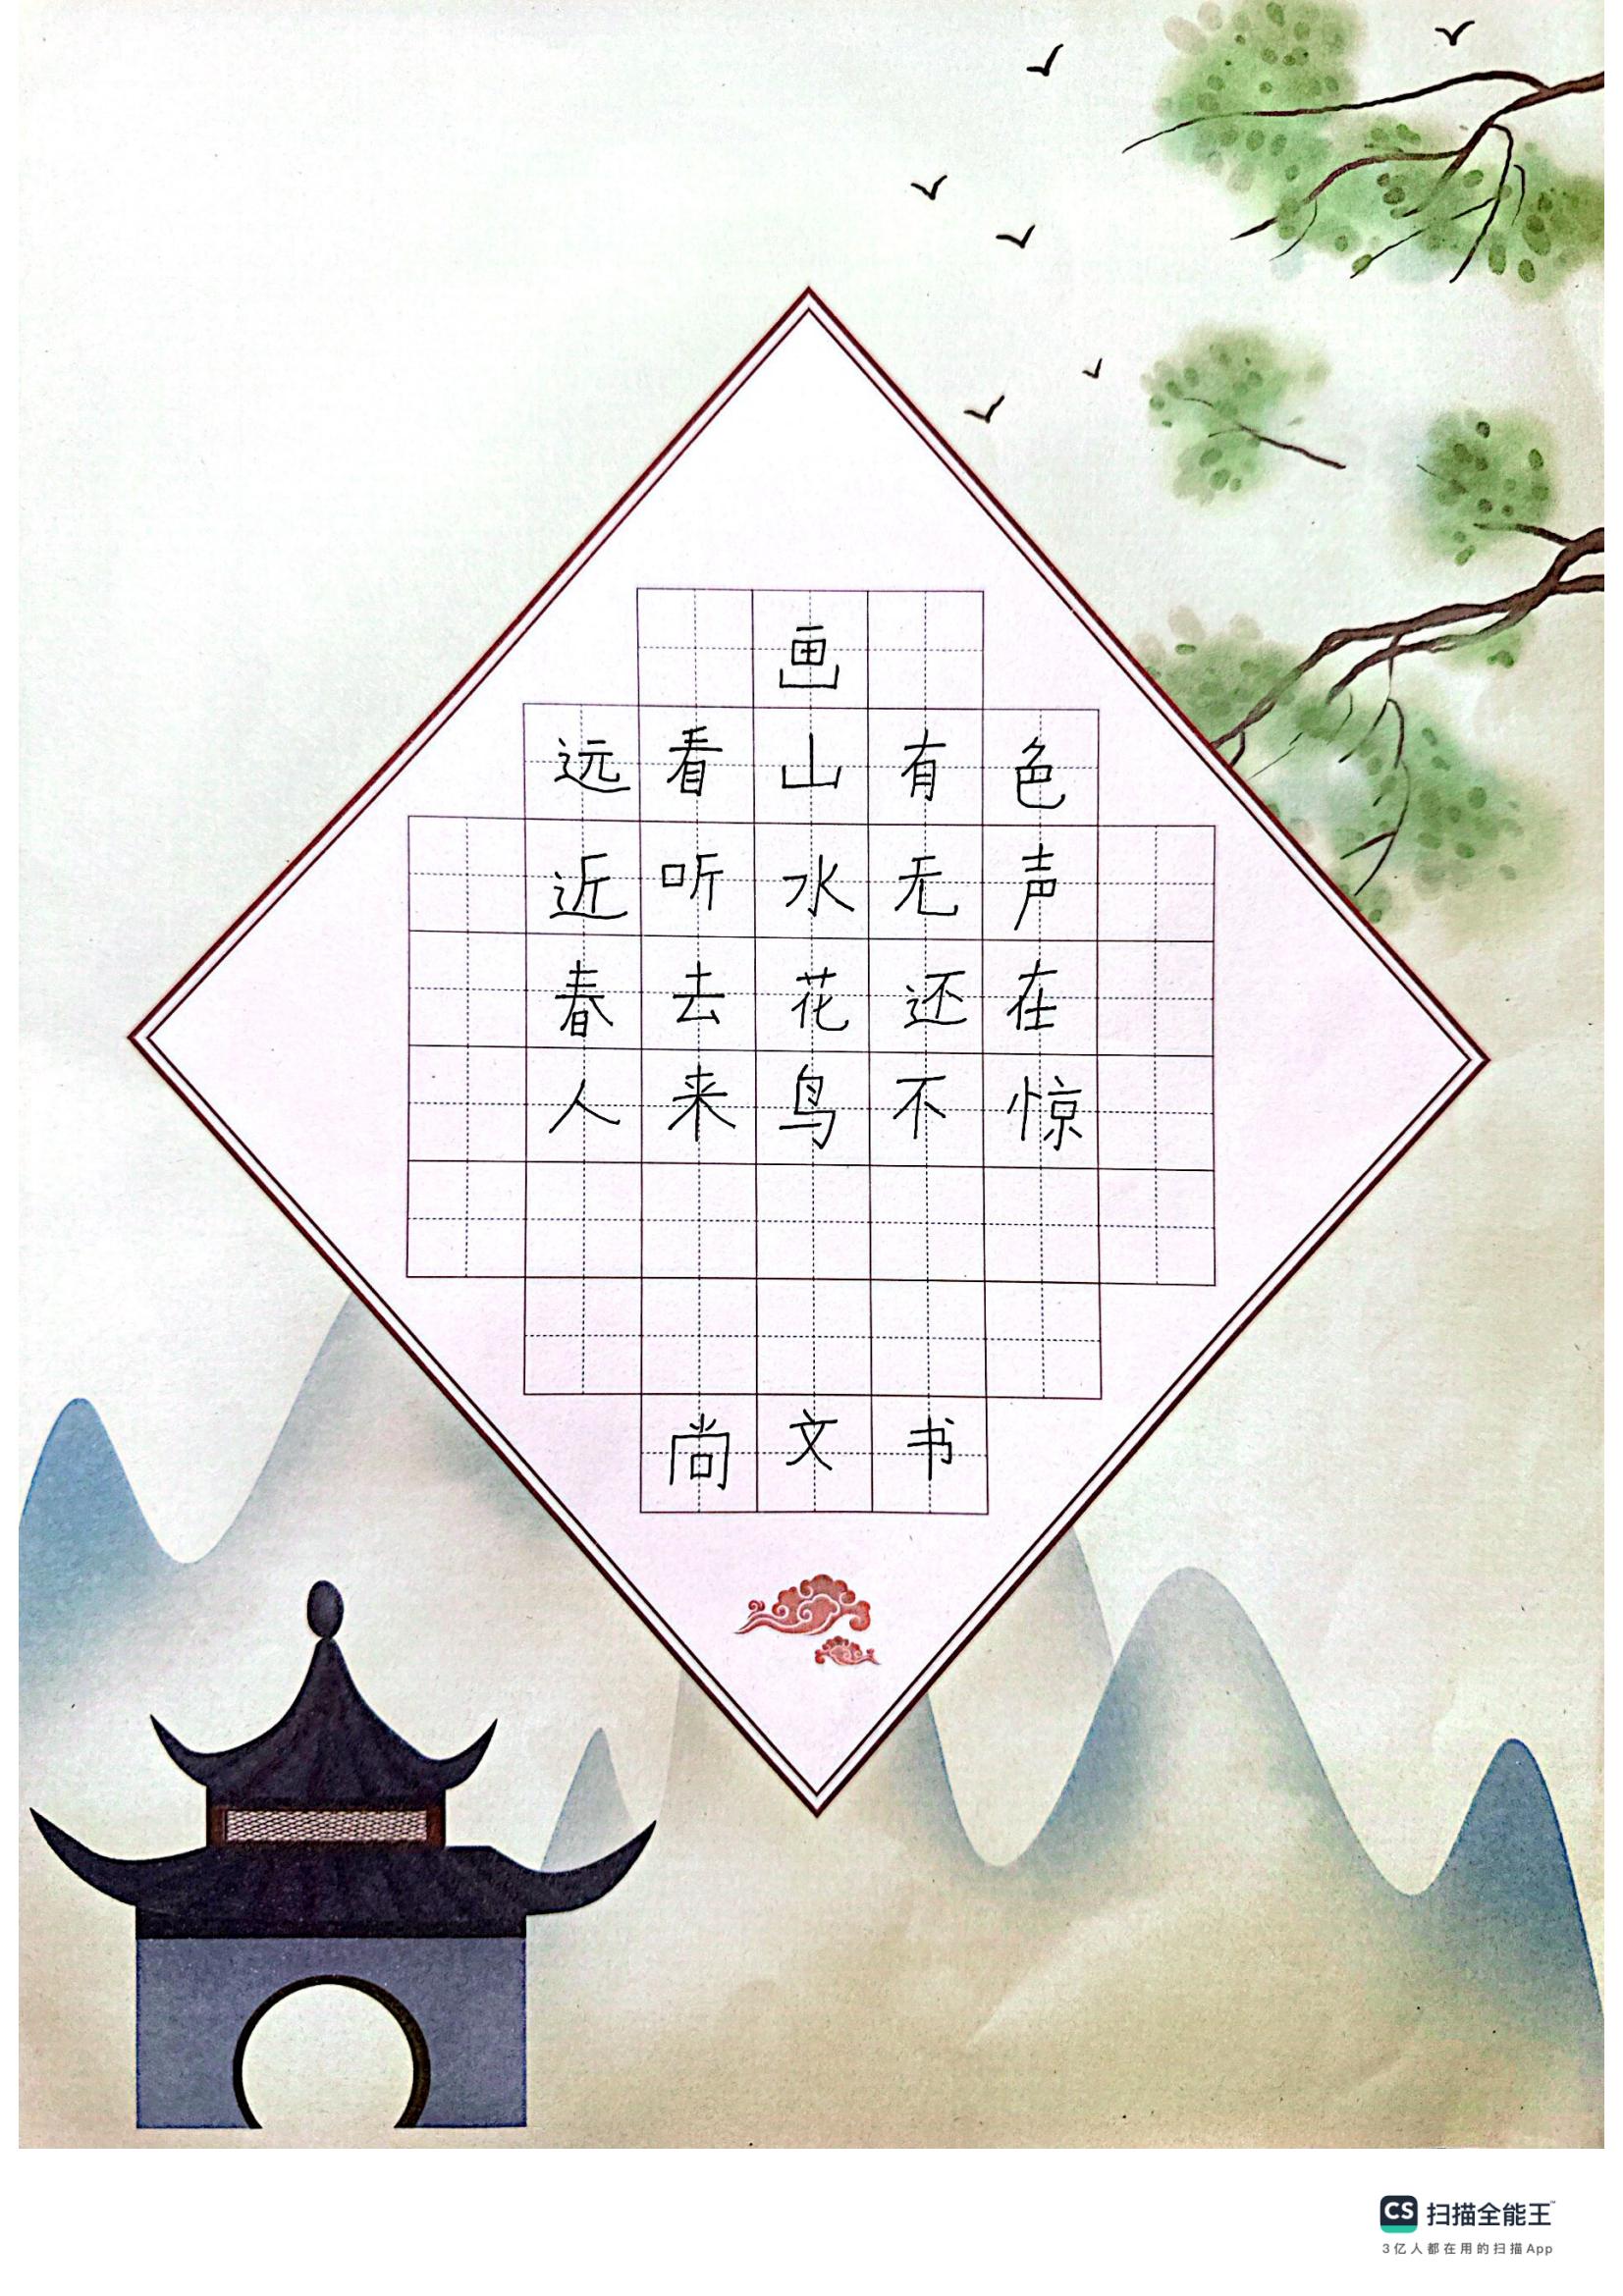 画
远看山有色
近听水无声
春去花还在
人来鸟不惊
尚文书
CS 扫描全能王
3亿人都在用的扫描App